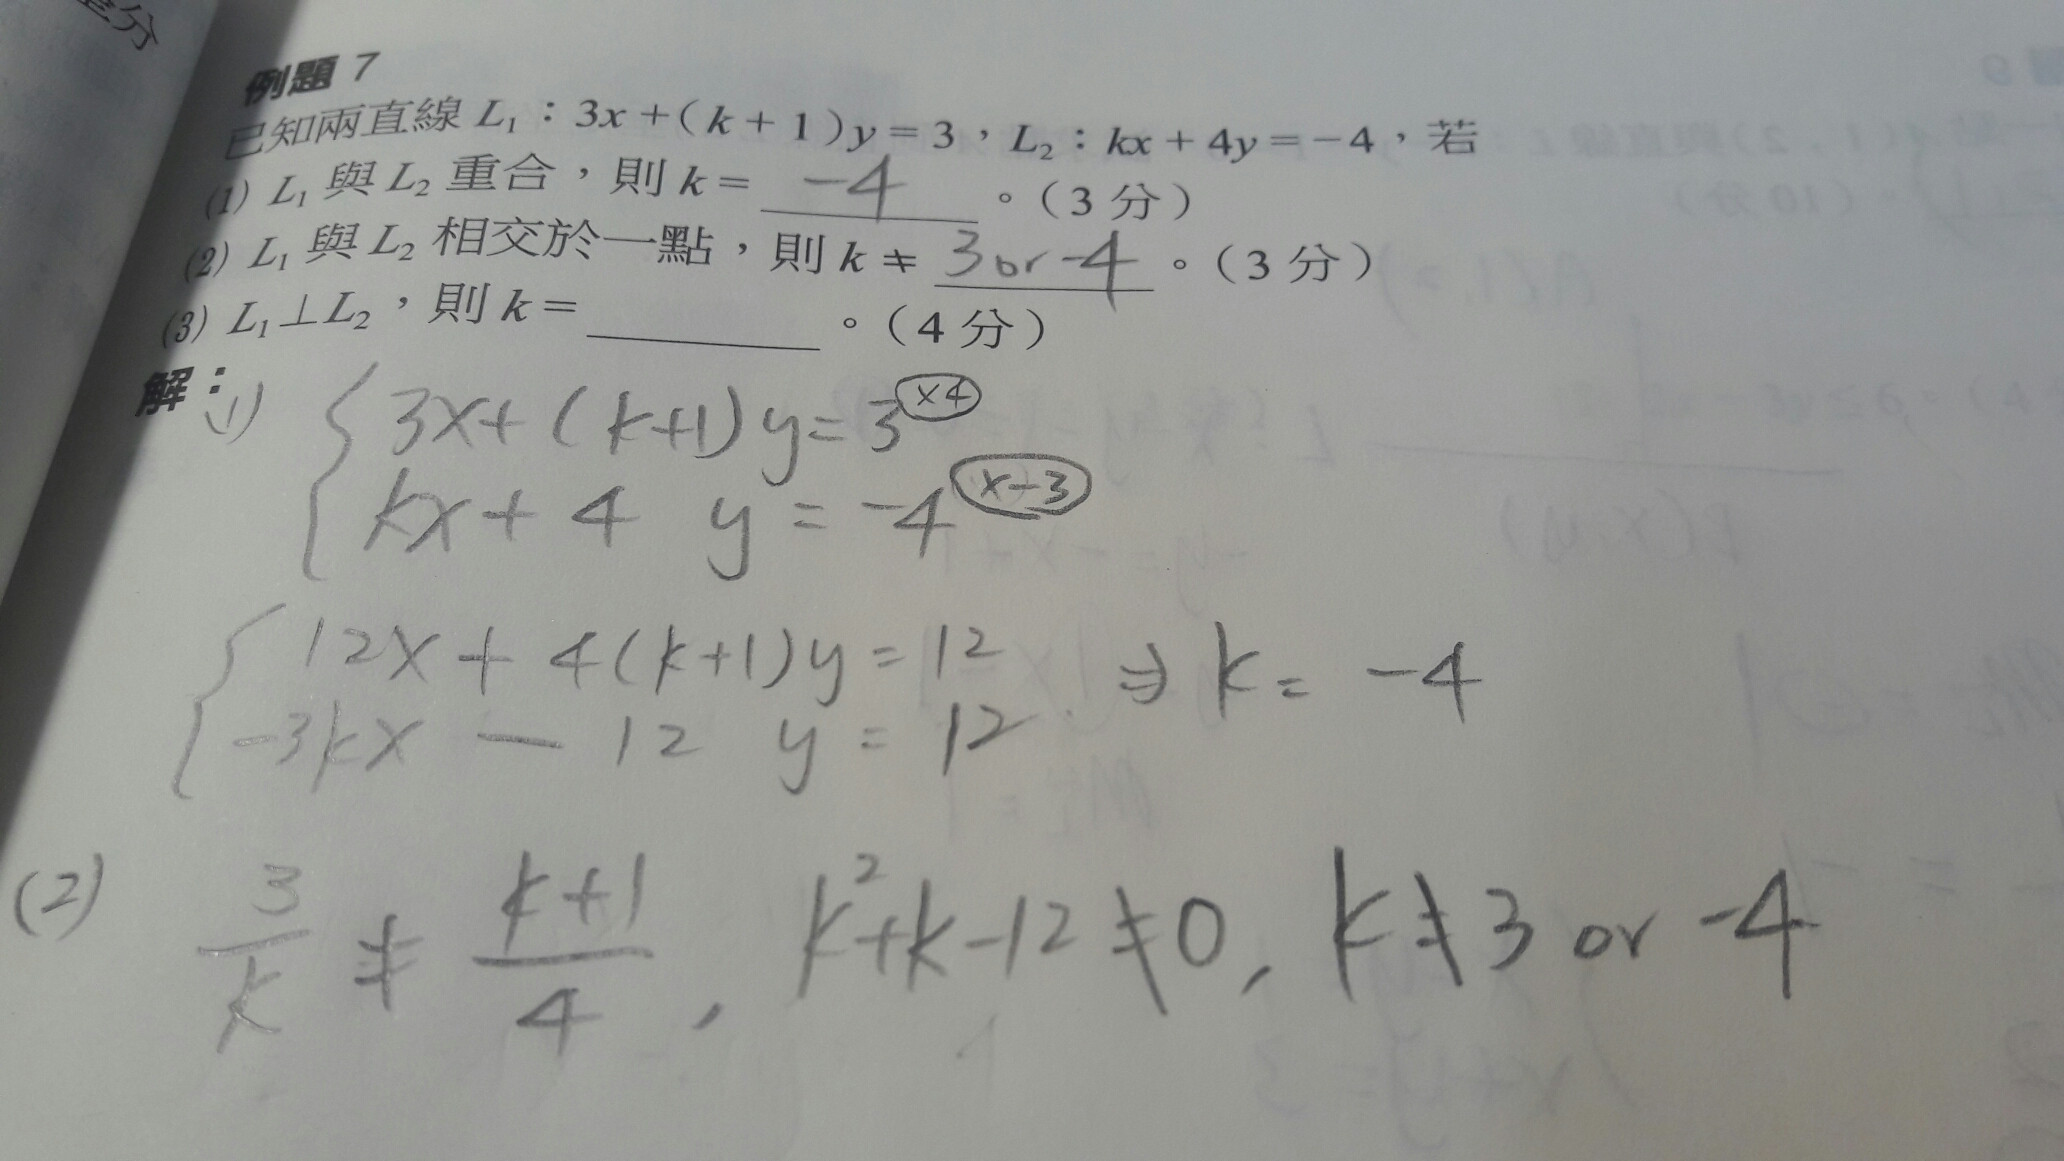 例題 7
已知兩直線 L₁：3x+(k+1)y=3，L₂：kx+4y=-4，若
(1) L₁ 與 L₂ 重合，則 k= -4 。(3 分)
(2) L₁ 與 L₂ 相交於一點，則 k ≠ 3 or -4 。(3 分)
(3) L₁⊥L₂，則 k= ______ 。(4 分)
解：
(1) { 3x+(k+1)y=3 ×4
kx+4 y=-4 ×-3
{ 12x+4(k+1)y=12 ⇒ k=-4
-3kx-12 y=12
(2) 3/k ≠ (k+1)/4, k²+k-12≠0, k≠3 or -4